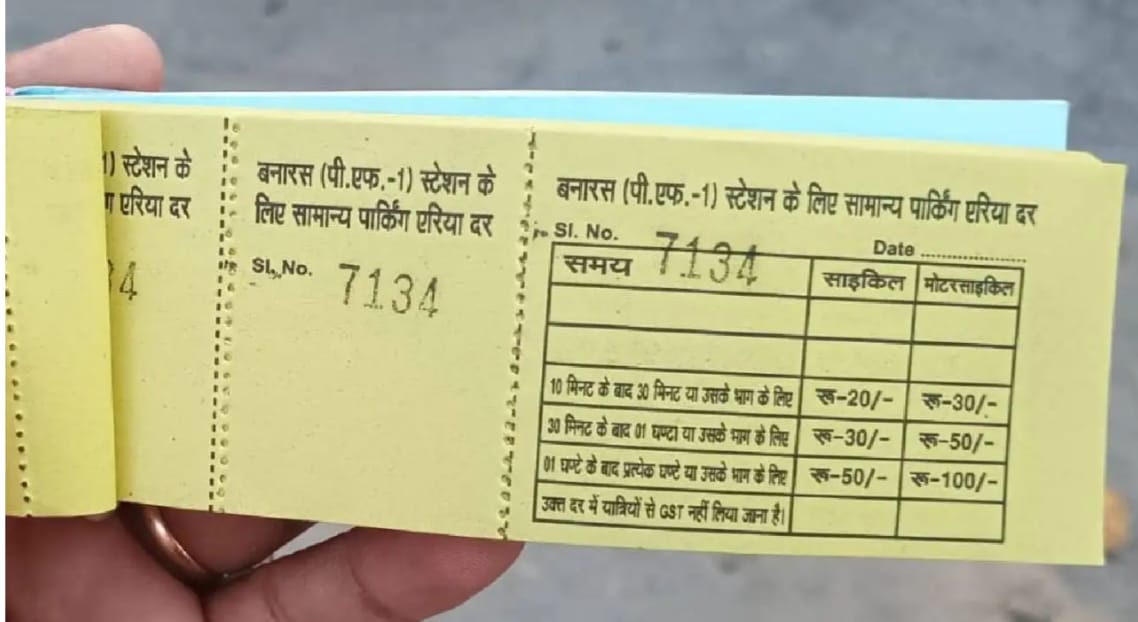 1) स्टेशन के
एरिया दर
34
बनारस (पी.एफ.-1) स्टेशन के
लिए सामान्य पार्किंग एरिया दर
Sl. No. 7134
बनारस (पी.एफ.-1) स्टेशन के लिए सामान्य पार्किंग एरिया दर
Sl. No. 7134 Date ....................
समय साइकिल मोटरसाइकिल
10 मिनट के बाद 30 मिनट या उसके भाग के लिए रू-20/- रू-30/-
30 मिनट के बाद 01 घण्टा या उसके भाग के लिए रू-30/- रू-50/-
01 घण्टे के बाद प्रत्येक घण्टे या उसके भाग के लिए रू-50/- रू-100/-
उक्त दर में यात्रियों से GST नहीं लिया जाना है।